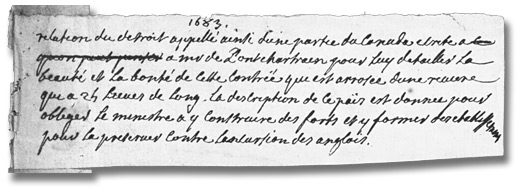 1683.
relation du detroit appellé ainsi d'une partie du Canada ecrite a le
qu'on peut penser a mr de Pontchartrain pour luy detailler la
beauté et la bonté de cette Contrée que est arrosée d'une riviere
que a 25 lieues de long. la description de ce païs est donnee pour
obliger le ministre a y construire des forts et y former des etablissemens
pour la preserver contre l'invasion des anglois.